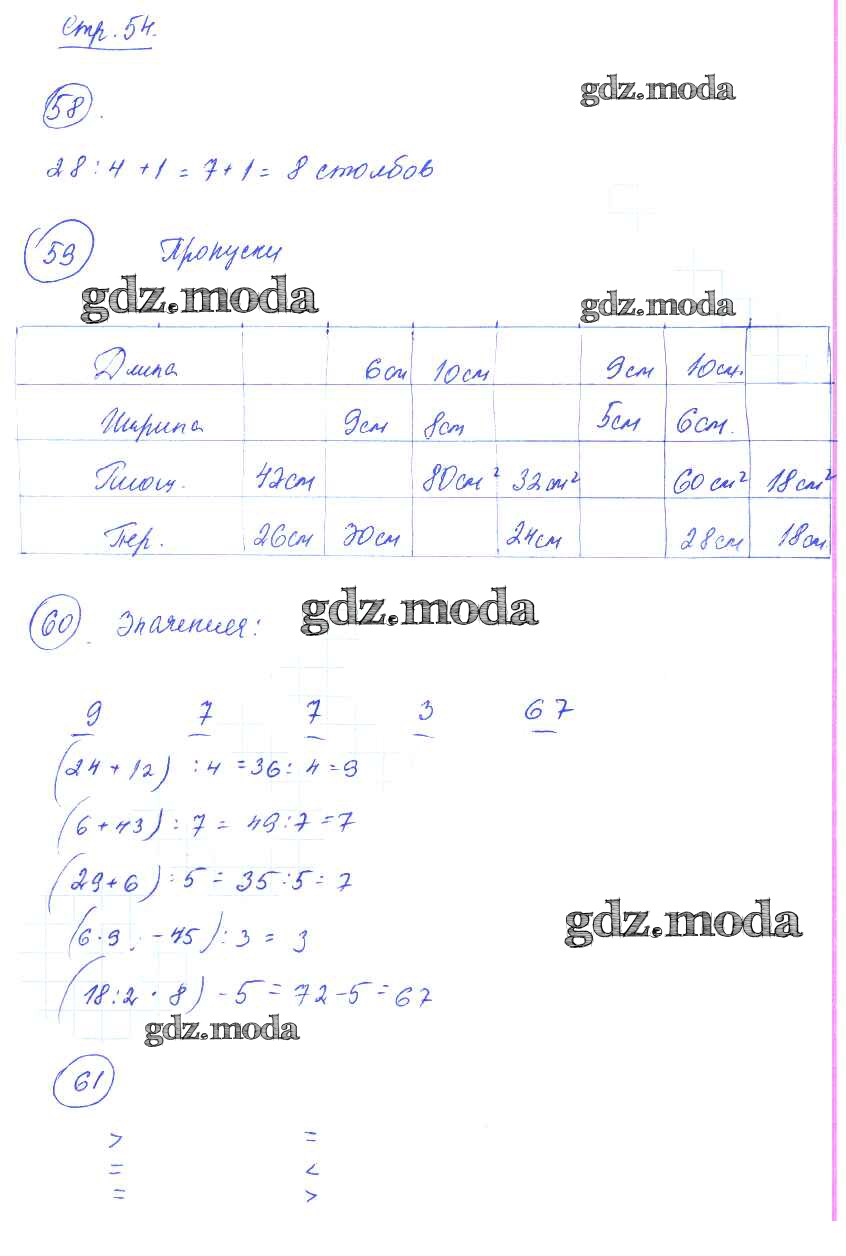 Стр. 54.
gdz.moda
58.
28 : 4 + 1 = 7 + 1 = 8 столбов
59 Пропуски
gdz.moda gdz.moda
Длина 6см 10см 9см 10см.
Ширина 9см 8см 5см 6см.
Площ. 42см 80см² 32см² 60см² 18см²
Пер. 26см 30см 24см 28см 18см
60 Значения: gdz.moda
9 7 7 3 67
(24 + 12) : 4 = 36 : 4 = 9
(6 + 43) : 7 = 49 : 7 = 7
(29 + 6) : 5 = 35 : 5 = 7
gdz.moda
(6 · 9 - 45) : 3 = 3
(18 : 2 · 8) - 5 = 72 - 5 = 67
gdz.moda
61
> =
= <
= >